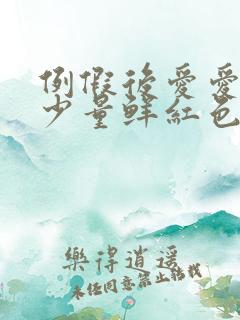 例假后爱爱
少量鲜红色
樂得逍遥
未经同意禁止转载